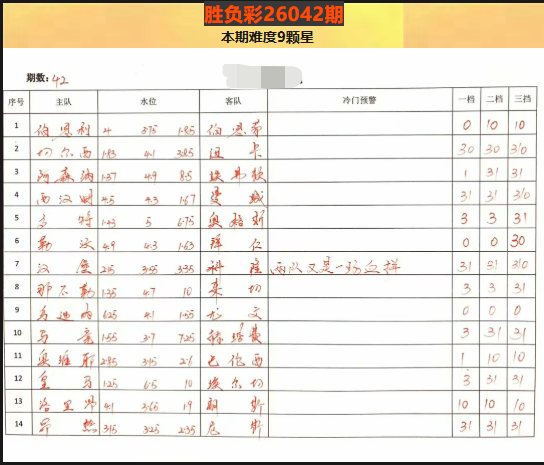 胜负彩26042期
本期难度9颗星
期数: 42
序号 主队 水位 客队 冷门预警 一档 二档 三档
1 伯恩利 4 3.75 1.85 伯恩茅 0 10 10
2 切尔西 1.83 4.1 3.85 纽卡 30 30 310
3 阿森纳 1.37 4.9 8.5 埃弗顿 1 31 31
4 西汉姆 4.5 4.3 1.67 曼城 31 31 310
5 多特 1.43 5 6.75 奥格斯 3 3 31
6 勒沃 4.9 4.3 1.63 拜仁 0 0 30
7 汉堡 2.05 3.55 3.35 科隆 两队又是一场血拼 31 31 310
8 那不勒 1.35 4.7 10 莱切 3 3 31
9 6.25 4.1 1.55 尤文 0 0 0
10 马竞 1.55 3.7 7.25 赫塔费 3 31 31
11 奥维耶 2.85 3.15 2.6 巴伦西 1 10 10
12 皇马 1.25 6.5 10 埃尔切 3 31 31
13 洛里昂 4.1 3.65 1.9 朗斯 10 10 10
14 昂热 3.15 3.25 2.35 尼斯 31 31 31